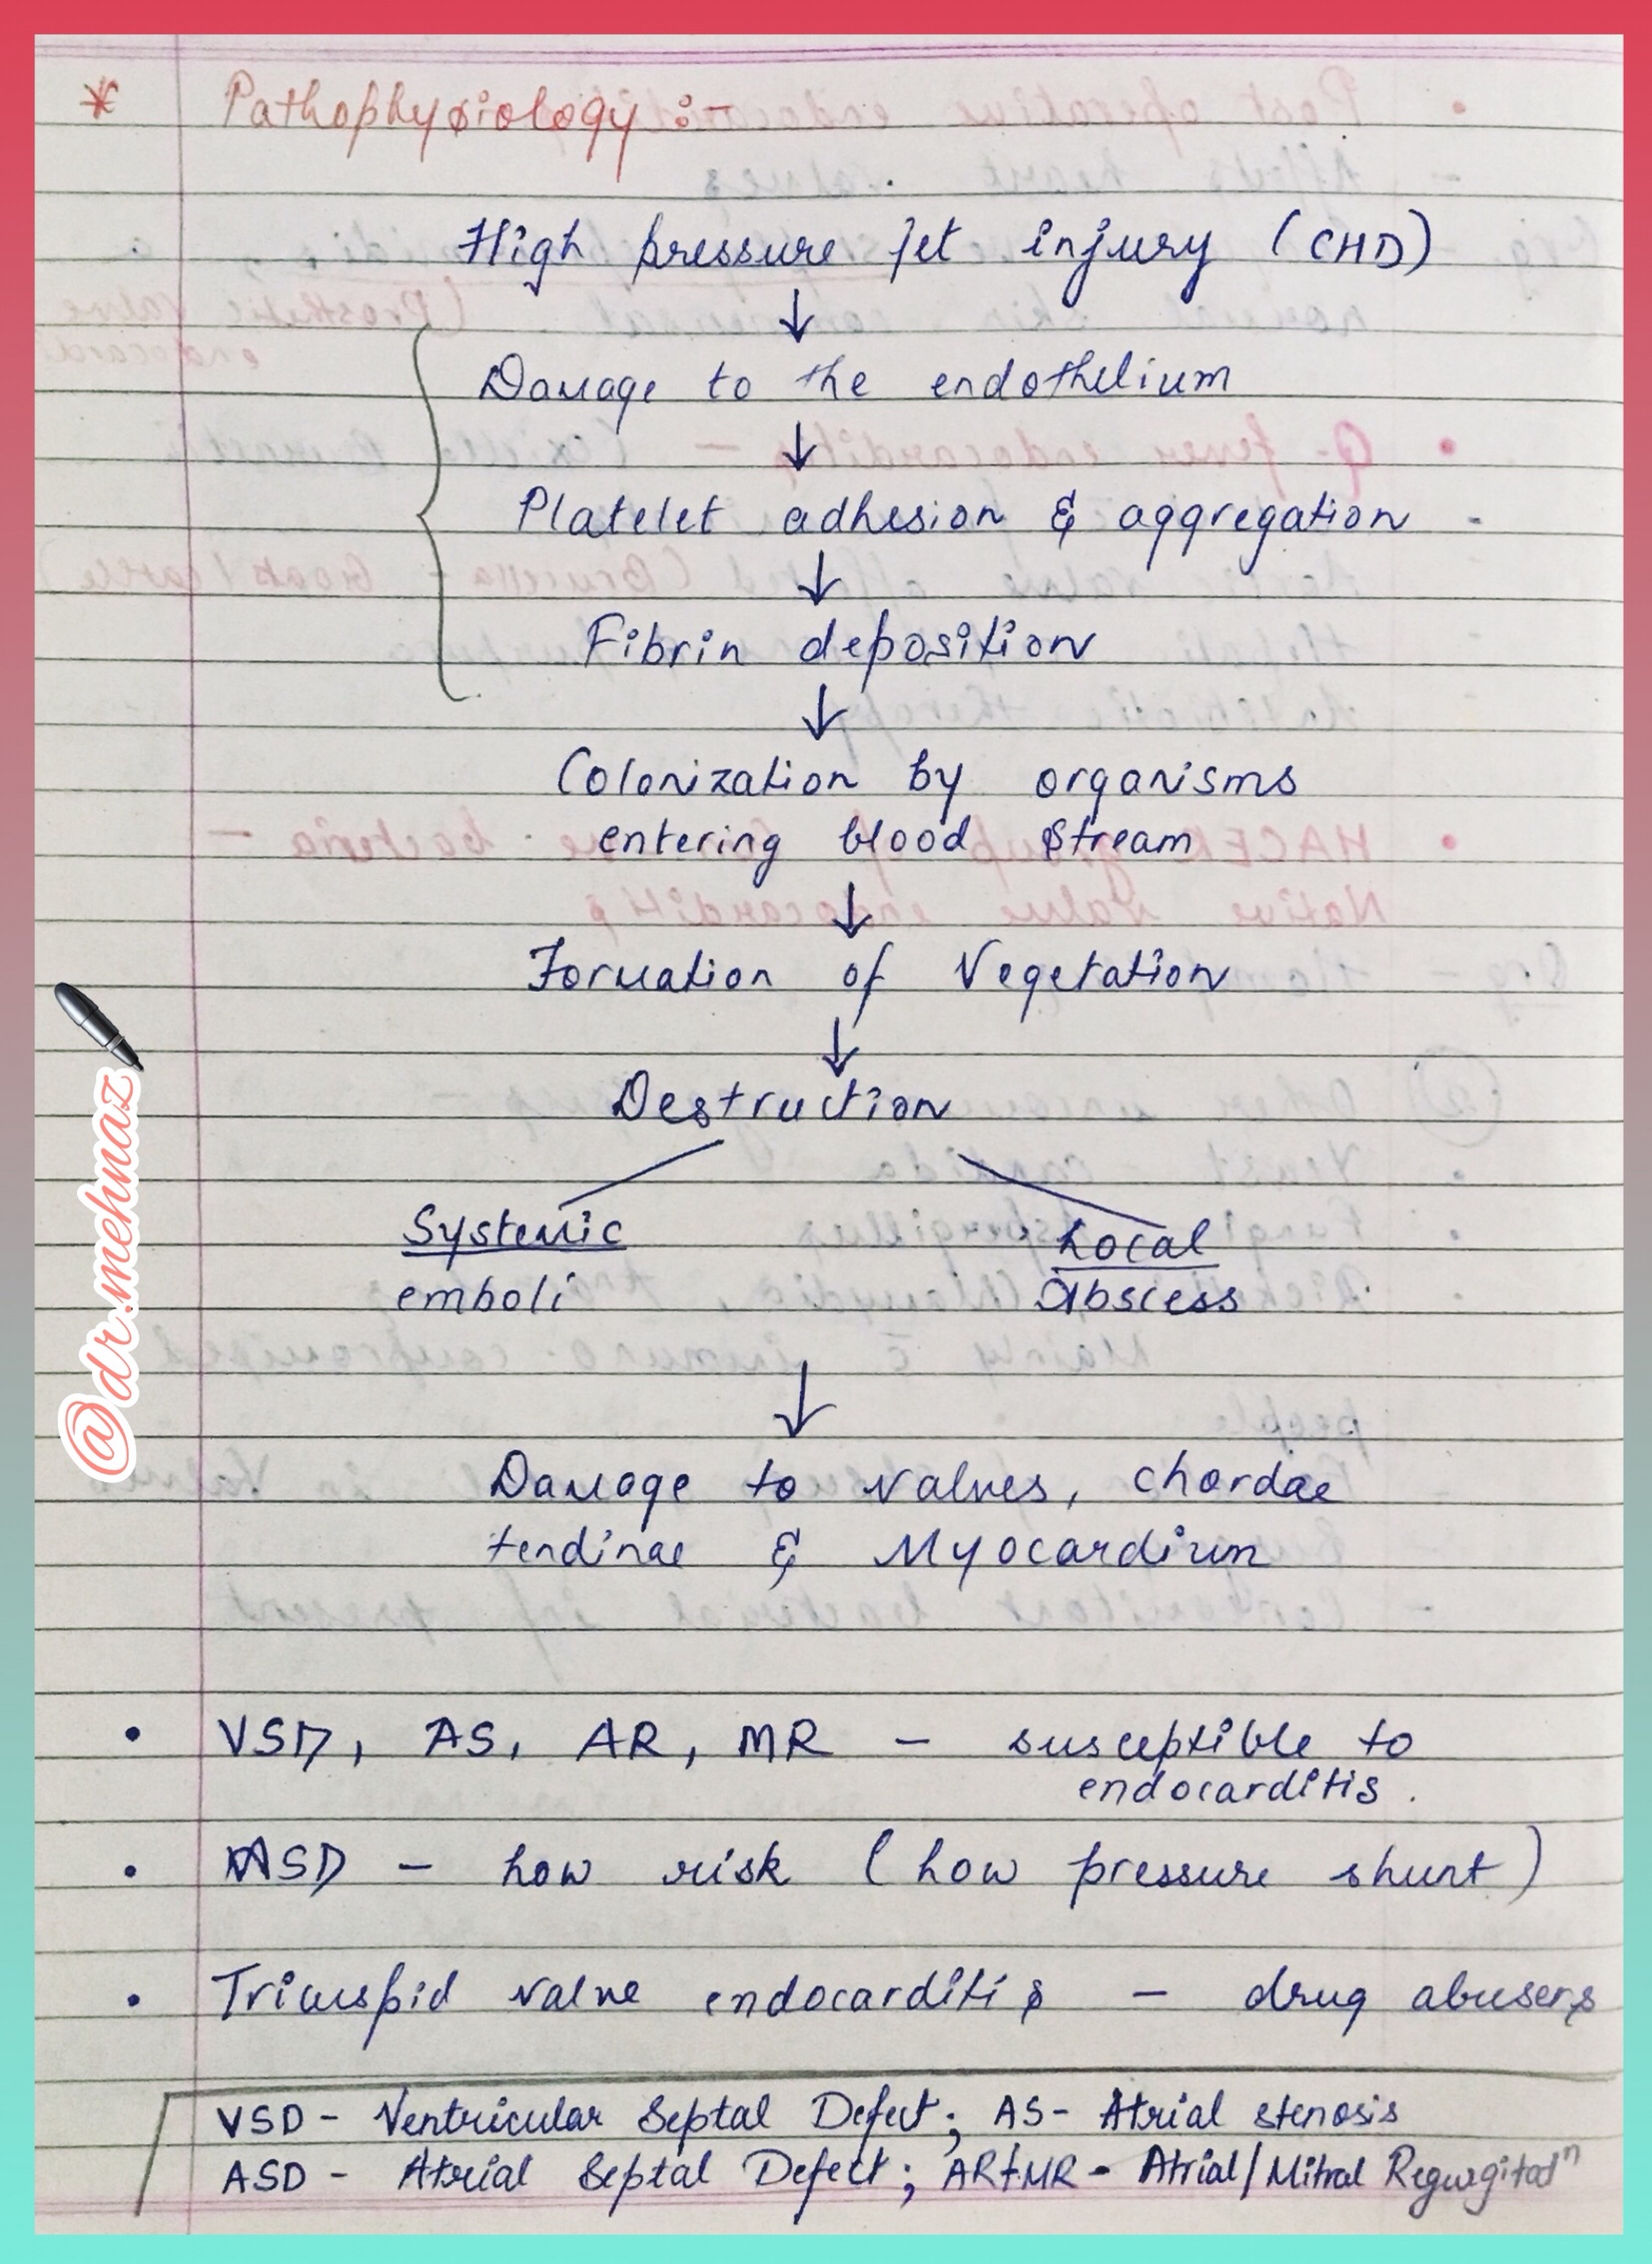 * Pathophysiology :-
High pressure jet injury (CHD)
↓
Damage to the endothelium
↓
Platelet adhesion & aggregation
↓
Fibrin deposition
↓
Colonization by organisms
entering blood stream
↓
Formation of Vegetation
↓
Destruction
Systemic Local
emboli Abscess
↓
Damage to valves, chordae
tendinae & Myocardium
@dr.mehnaz
• VSD, AS, AR, MR – susceptible to
endocarditis.
• ASD – Low risk (Low pressure shunt)
• Tricuspid valve endocarditis – drug abusers
VSD - Ventricular Septal Defect; AS- Atrial stenosis
ASD - Atrial Septal Defect; AR+MR - Atrial/Mitral Regurgitatⁿ